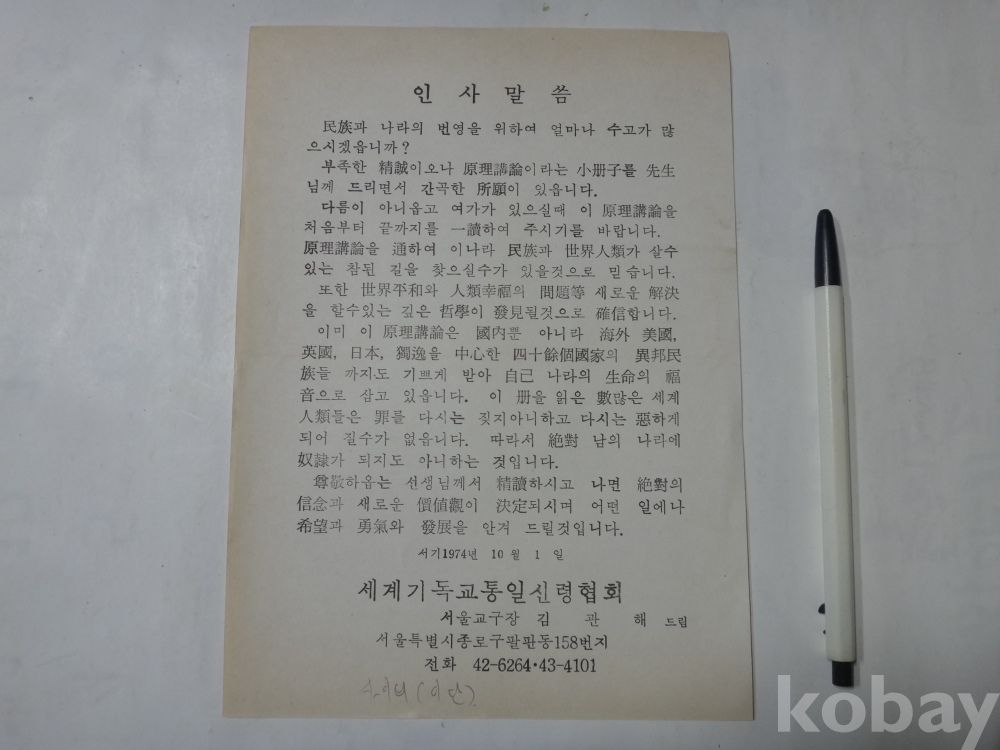 인 사 말 씀
民族과 나라의 번영을 위하여 얼마나 수고가 많
으시겠읍니까?
부족한 精誠이오나 原理講論이라는 小册子를 先生
님께 드리면서 간곡한 所願이 있읍니다.
다름이 아니옵고 여가가 있으실때 이 原理講論을
처음부터 끝까지를 一讀하여 주시기를 바랍니다.
原理講論을 通하여 이나라 民族과 世界人類가 살수
있는 참된 길을 찾으실수가 있을것으로 믿습니다.
또한 世界平和와 人類幸福의 問題等 새로운 解決
을 할수있는 깊은 哲學이 發見될것으로 確信합니다.
이미 이 原理講論은 國內뿐 아니라 海外 美國,
英國, 日本, 獨逸을 中心한 四十餘個國家의 異邦民
族들 까지도 기쁘게 받아 自己 나라의 生命의 福
音으로 삼고 있읍니다. 이 册을 읽은 數많은 세계
人類들은 罪를 다시는 짖지아니하고 다시는 惡하게
되어 질수가 없읍니다. 따라서 絶對 남의 나라에
奴隷가 되지도 아니하는 것입니다.
尊敬하옵는 선생님께서 精讀하시고 나면 絶對의
信念과 새로운 價値觀이 決定되시며 어떤 일에나
希望과 勇氣와 發展을 안겨 드릴것입니다.
서기1974년 10월 1일
세계기독교통일신령협회
서울교구장 김 관 해 드림
서울특별시종로구팔판동158번지
전화 42-6264·43-4101
(이단)
kobay